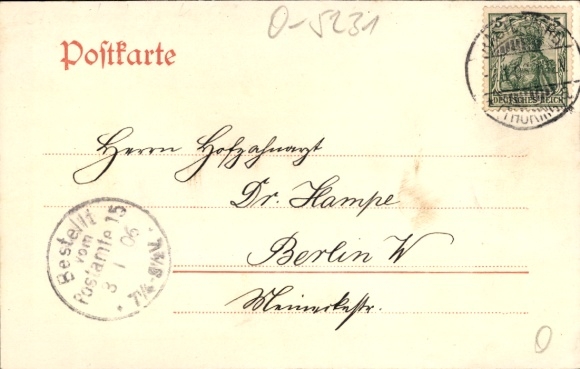 O-5231
Postkarte
5 5
DEUTSCHES REICH
(THÜRINGEN)
Herrn Hofzahnarzt
Dr. Hampe
Berlin W
Meinekestr.
Bestellt
vom
Postamte 15
3 1 06
O